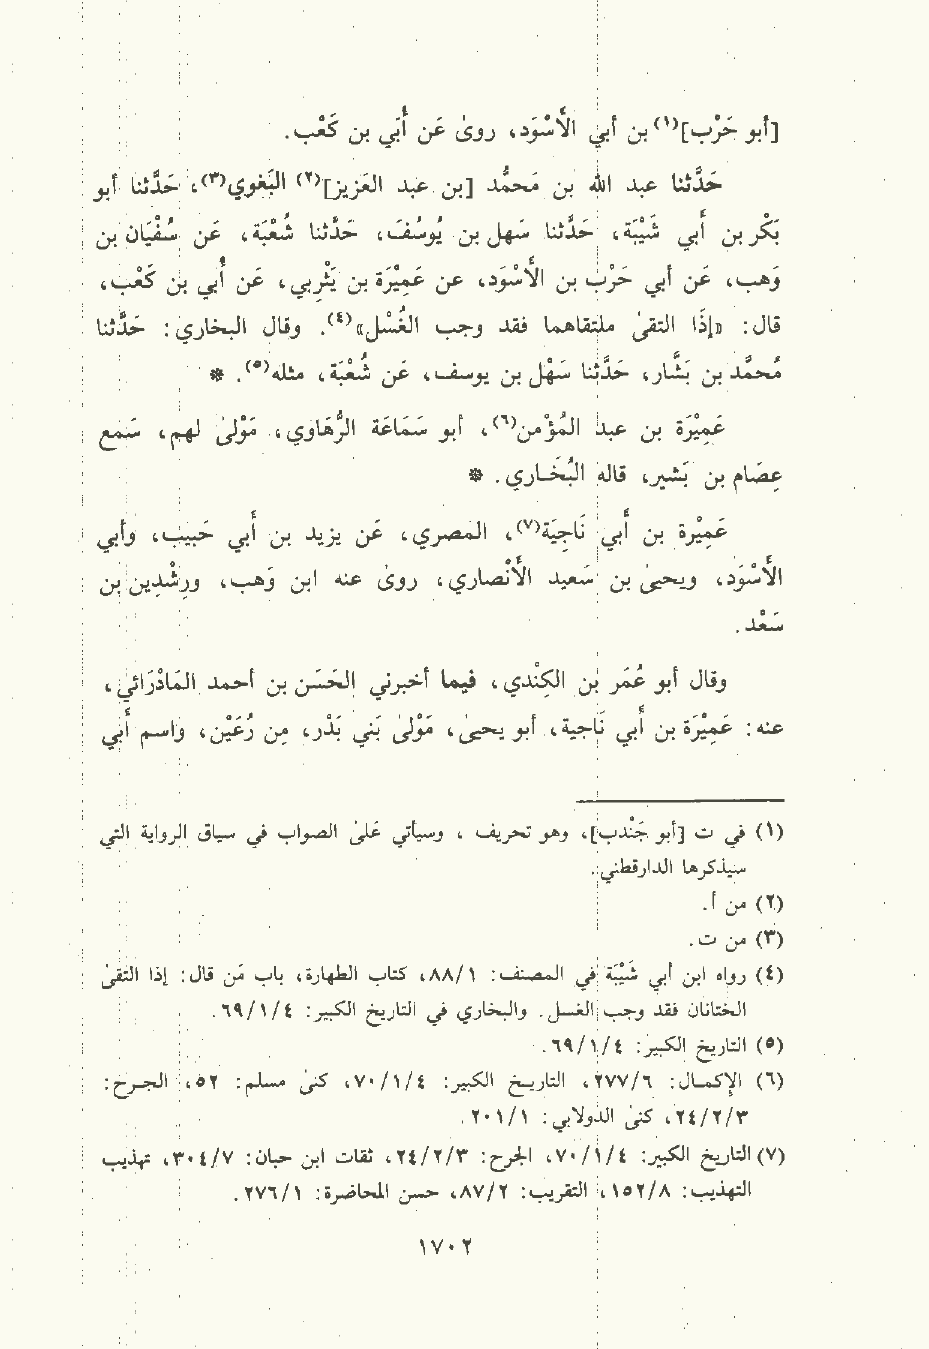 [أبو حَرْب](١) بن أبي الأَسْوَد، روىٰ عَن أُبَي بن كَعْب.
حَدَّثنا عبد الله بن محمَّد [بن عبد العَزيز](٢) البَغوي(٣)، حَدَّثنا أبو
بَكْر بن أَبي شَيْبَة، حَدَّثنا سَهل بن يُوسُفَ، حَدَّثنا شُعْبَة، عَن سُفْيَان بن
وَهب، عَن أبي حَرْب بن الأَسْوَد، عن عَمِيْرَة بن يَثْرِبي، عَن أُبي بن كَعْب،
قال: «إذَا التقىٰ ملتقاهما فقد وجب الغُسْل»(٤). وقال البخاري: حَدَّثنا
مُحمَّد بن بَشَّار، حَدَّثنا سَهْل بن يوسف، عَن شُعْبَة، مثله(٥). *
عَمِيْرَة بن عبد المُؤْمن(٦)، أبو سَمَاعَة الرُّهَاوي، مَوْلىٰ لهم، سَمع
عِصَام بن بَشير، قاله البُخَاري. *
عَمِيْرة بن أَبي نَاجِيَة(٧)، المصري، عَن يزيد بن أَبي حَبيب، وأبي
الأَسْوَد، ويحيىٰ بن سَعيد الأَنْصاري، روىٰ عنه ابن وَهب، ورِشْدِين بن
سَعْد.
وقال أبو عُمَر بن الكِنْدي، فيما أخبرني الحَسَن بن أحمد المَاذْرَائي،
عنه: عَمِيْرَة بن أَبي نَاجية، أبو يحيىٰ، مَوْلىٰ بَني بَدْر، مِن رُعَيْن، واسم أَبي
(١) في ت [أبو جَنْدب]، وهو تحريف ، وسيأتي عَلىٰ الصواب في سياق الرواية التي
سيذكرها الدارقطني.
(٢) من أ.
(٣) من ت.
(٤) رواه ابن أبي شَيْبَة في المصنف: ٨٨/١، كتاب الطهارة، باب مَن قال: إذا التقىٰ
الختانان فقد وجب الغسل. والبخاري في التاريخ الكبير: ٦٩/١/٤.
(٥) التاريخ الكبير: ٦٩/١/٤.
(٦) الإكمال: ٢٧٧/٦، التاريخ الكبير: ٧٠/١/٤، كنىٰ مسلم: ٥٢، الجرح:
٢٤/٢/٣، كنىٰ الدولابي: ٢٠١/١.
(٧) التاريخ الكبير: ٧٠/١/٤، الجرح: ٢٤/٢/٣، ثقات ابن حبان: ٣٠٤/٧، تهذيب
التهذيب: ١٥٢/٨، التقريب: ٨٧/٢، حسن المحاضرة: ٢٧٦/١.
١٧٠٢